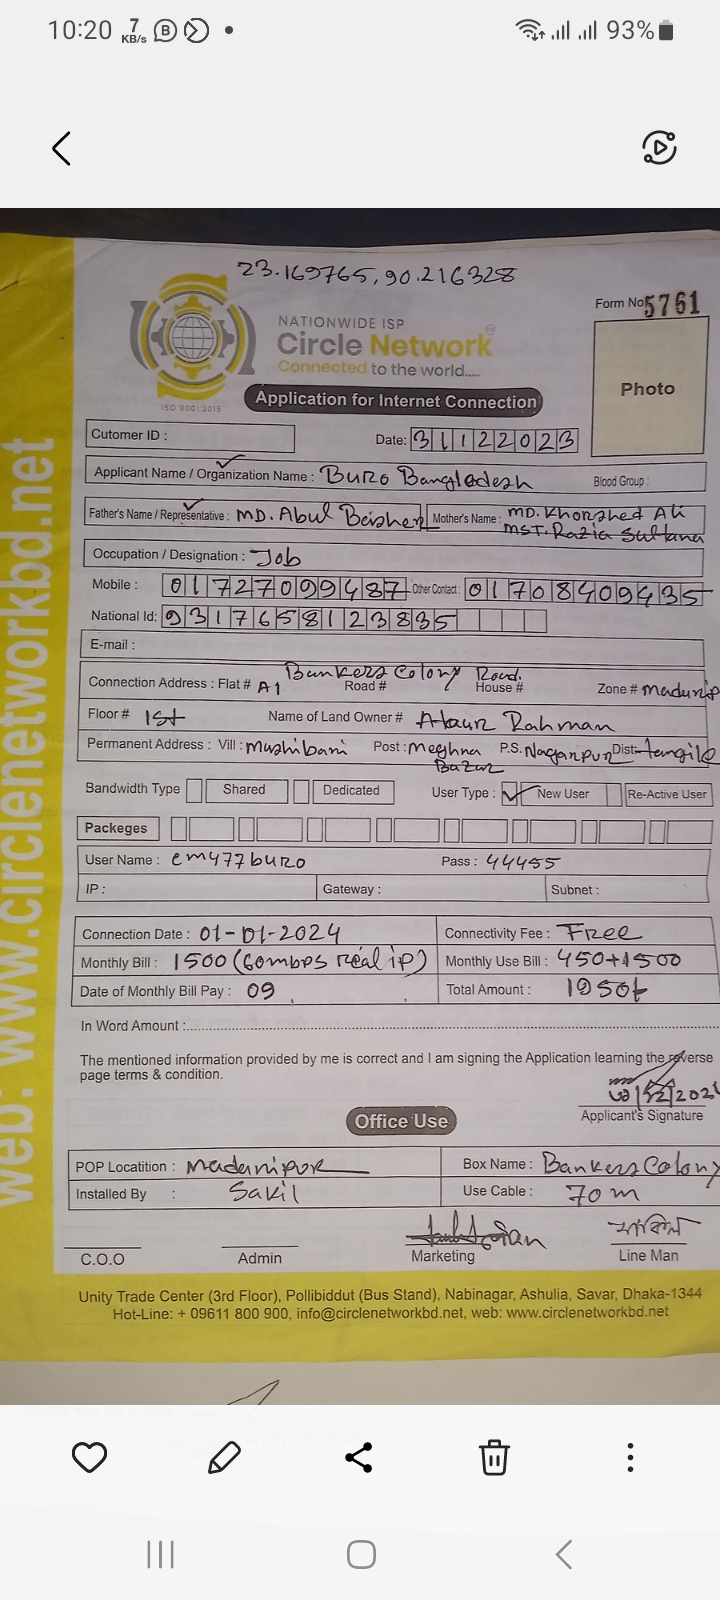 10:20 7 KB/s B 93%
23.169765, 90.216328
Form No 5761
NATIONWIDE ISP
Circle Network
Connected to the world.....
ISO 9001:2015
Application for Internet Connection
Photo
Cutomer ID :
Date: 31122023
Applicant Name / Organization Name : Buro Bangladesh Blood Group :
Father's Name / Representative : MD. Abul Basher Mother's Name : MD. Khorshed Ali
MST. Razia Sultana
Occupation / Designation : Job
Mobile : 01727099487 Other Contact : 01708409435
National Id: 9317658123835
E-mail :
Bankers Colony Road.
Connection Address : Flat # A1 Road # House # Zone # Madarip
Floor # 1st Name of Land Owner # Ataur Rahman
Permanent Address : Vill : Mushibani Post : Meghna Bazar P.S. Nagarpur Dist: tangile
Bandwidth Type Shared Dedicated User Type : New User Re-Active User
Packeges
User Name : em477buro Pass : 44455
IP : Gateway : Subnet :
Connection Date : 01-01-2024 Connectivity Fee : Free
Monthly Bill : 1500 (60mbps real ip) Monthly Use Bill : 450+1500
Date of Monthly Bill Pay : 09 Total Amount : 1950t
In Word Amount :
The mentioned information provided by me is correct and I am signing the Application learning the reverse
page terms & condition.
Applicant's Signature
Office Use
POP Locatition : Madaripur Box Name : Bankers Colony
Installed By : Sakil Use Cable : 70 m
C.O.O Admin Marketing Line Man
Unity Trade Center (3rd Floor), Pollibiddut (Bus Stand), Nabinagar, Ashulia, Savar, Dhaka-1344
Hot-Line: + 09611 800 900, info@circlenetworkbd.net, web: www.circlenetworkbd.net
web: www.circlenetworkbd.net